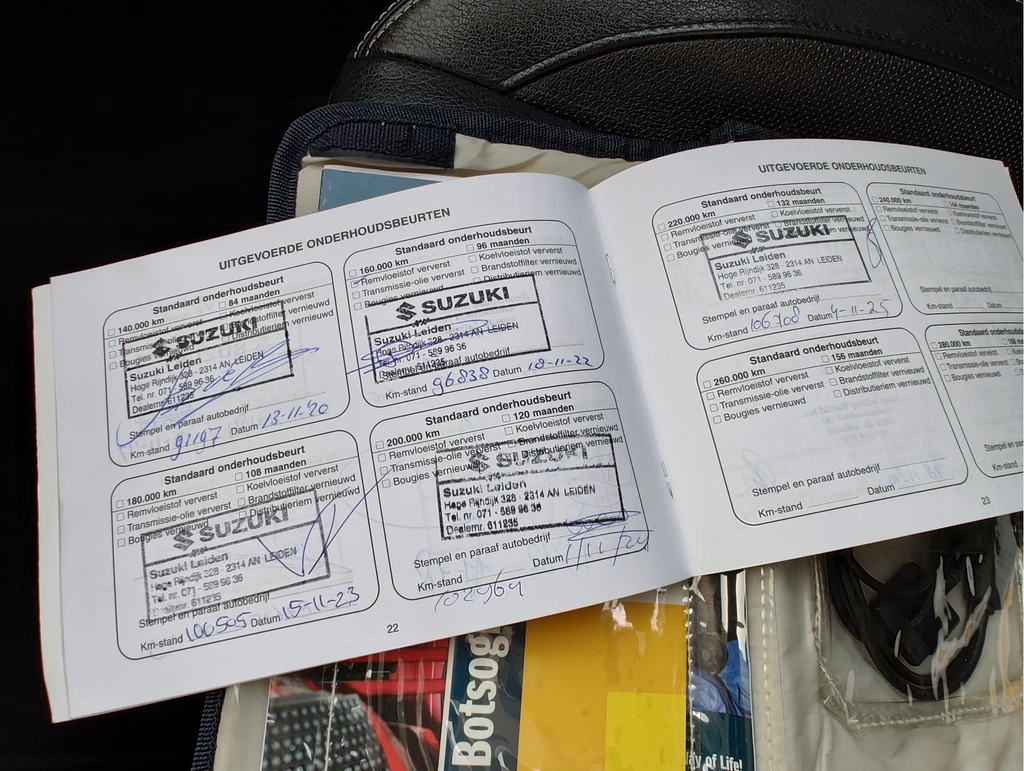 UITGEVOERDE ONDERHOUDSBEURTEN
Standaard onderhoudsbeurt
140.000 km 84 maanden
Remvloeistof ververst Koelvloeistof ververst
Bougies
SUZUKI
Suzuki Leiden
Hoge Rijndijk 328 - 2314 AN LEIDEN
Tel. nr. 071 - 589 96 36
Dealernr. 611235
Stempel en paraaf autobedrijf
Km-stand 91197 Datum 13-11-20
Standaard onderhoudsbeurt
160.000 km 96 maanden
Remvloeistof ververst Koelvloeistof ververst
Transmissie-olie ververst Brandstoffilter vernieuwd
Bougies vernieuwd Distributieriem vernieuwd
SUZUKI
Suzuki Leiden
Hoge Rijndijk 328 - 2314 AN LEIDEN
Tel. nr. 071 - 589 96 36
Dealernr. 611235
Stempel en paraaf autobedrijf
Km-stand 96838 Datum 18-11-22
Standaard onderhoudsbeurt
180.000 km 108 maanden
Remvloeistof ververst Koelvloeistof ververst
Transmissie-olie ververst Brandstoffilter vernieuwd
Bougies vernieuwd Distributieriem vernieuwd
SUZUKI
Suzuki Leiden
Hoge Rijndijk 328 - 2314 AN LEIDEN
Tel. nr. 071 - 589 96 36
Stempel en paraaf autobedrijf
Km-stand 100505 Datum 15-11-23
Standaard onderhoudsbeurt
200.000 km 120 maanden
Remvloeistof ververst Koelvloeistof ververst
Transmissie-olie ververst Brandstoffilter vernieuwd
Bougies vernieuwd Distributieriem vernieuwd
SUZUKI
Suzuki Leiden
Hoge Rijndijk 328 - 2314 AN LEIDEN
Tel. nr. 071 - 589 96 36
Dealernr. 611235
Stempel en paraaf autobedrijf
Km-stand Datum
102969
22
UITGEVOERDE ONDERHOUDSBEURTEN
Standaard onderhoudsbeurt
220.000 km 132 maanden
Remvloeistof ververst Koelvloeistof ververst
Transmissie-olie ververst Brandstoffilter vernieuwd
Bougies
SUZUKI
Suzuki Leiden
Hoge Rijndijk 328 - 2314 AN LEIDEN
Tel. nr. 071 - 589 96 36
Dealernr. 611235
Stempel en paraaf autobedrijf
Km-stand 106708 Datum 4-11-25
Standaard onderhoudsbeurt
240.000 km 144 maanden
Remvloeistof ververst
Transmissie-olie ververst
Bougies vernieuwd
Stempel en paraaf autobedrijf
Km-stand Datum
Standaard onderhoudsbeurt
260.000 km 156 maanden
Remvloeistof ververst Koelvloeistof ververst
Transmissie-olie ververst Brandstoffilter vernieuwd
Bougies vernieuwd Distributieriem vernieuwd
Stempel en paraaf autobedrijf
Km-stand Datum
Standaard
280.000 km
Remvloeistof ververst
Transmissie-olie
Bougies vernieuwd
Stempel en paraaf
Km-stand
23
Botsog
ay of Life!